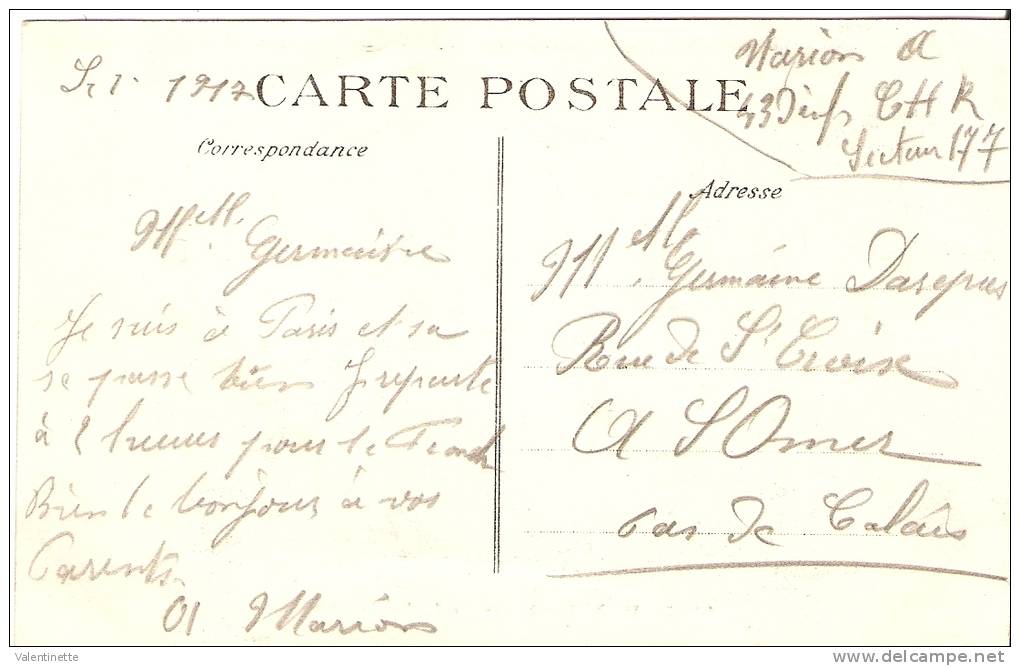 1917 CARTE POSTALE
Marion A
43 CHR
Secteur 177
Correspondance
Adresse
Melle Germaine
Je suis à Paris et sa
se passe bien Je reparte
à 2 heures pour le Front
Bien le bonjour à vos
Parents
A Marion
Melle Germaine Dasepus
Rue de St Croix
A St Omer
Pas de Calais
Valentinette
delcampe.net